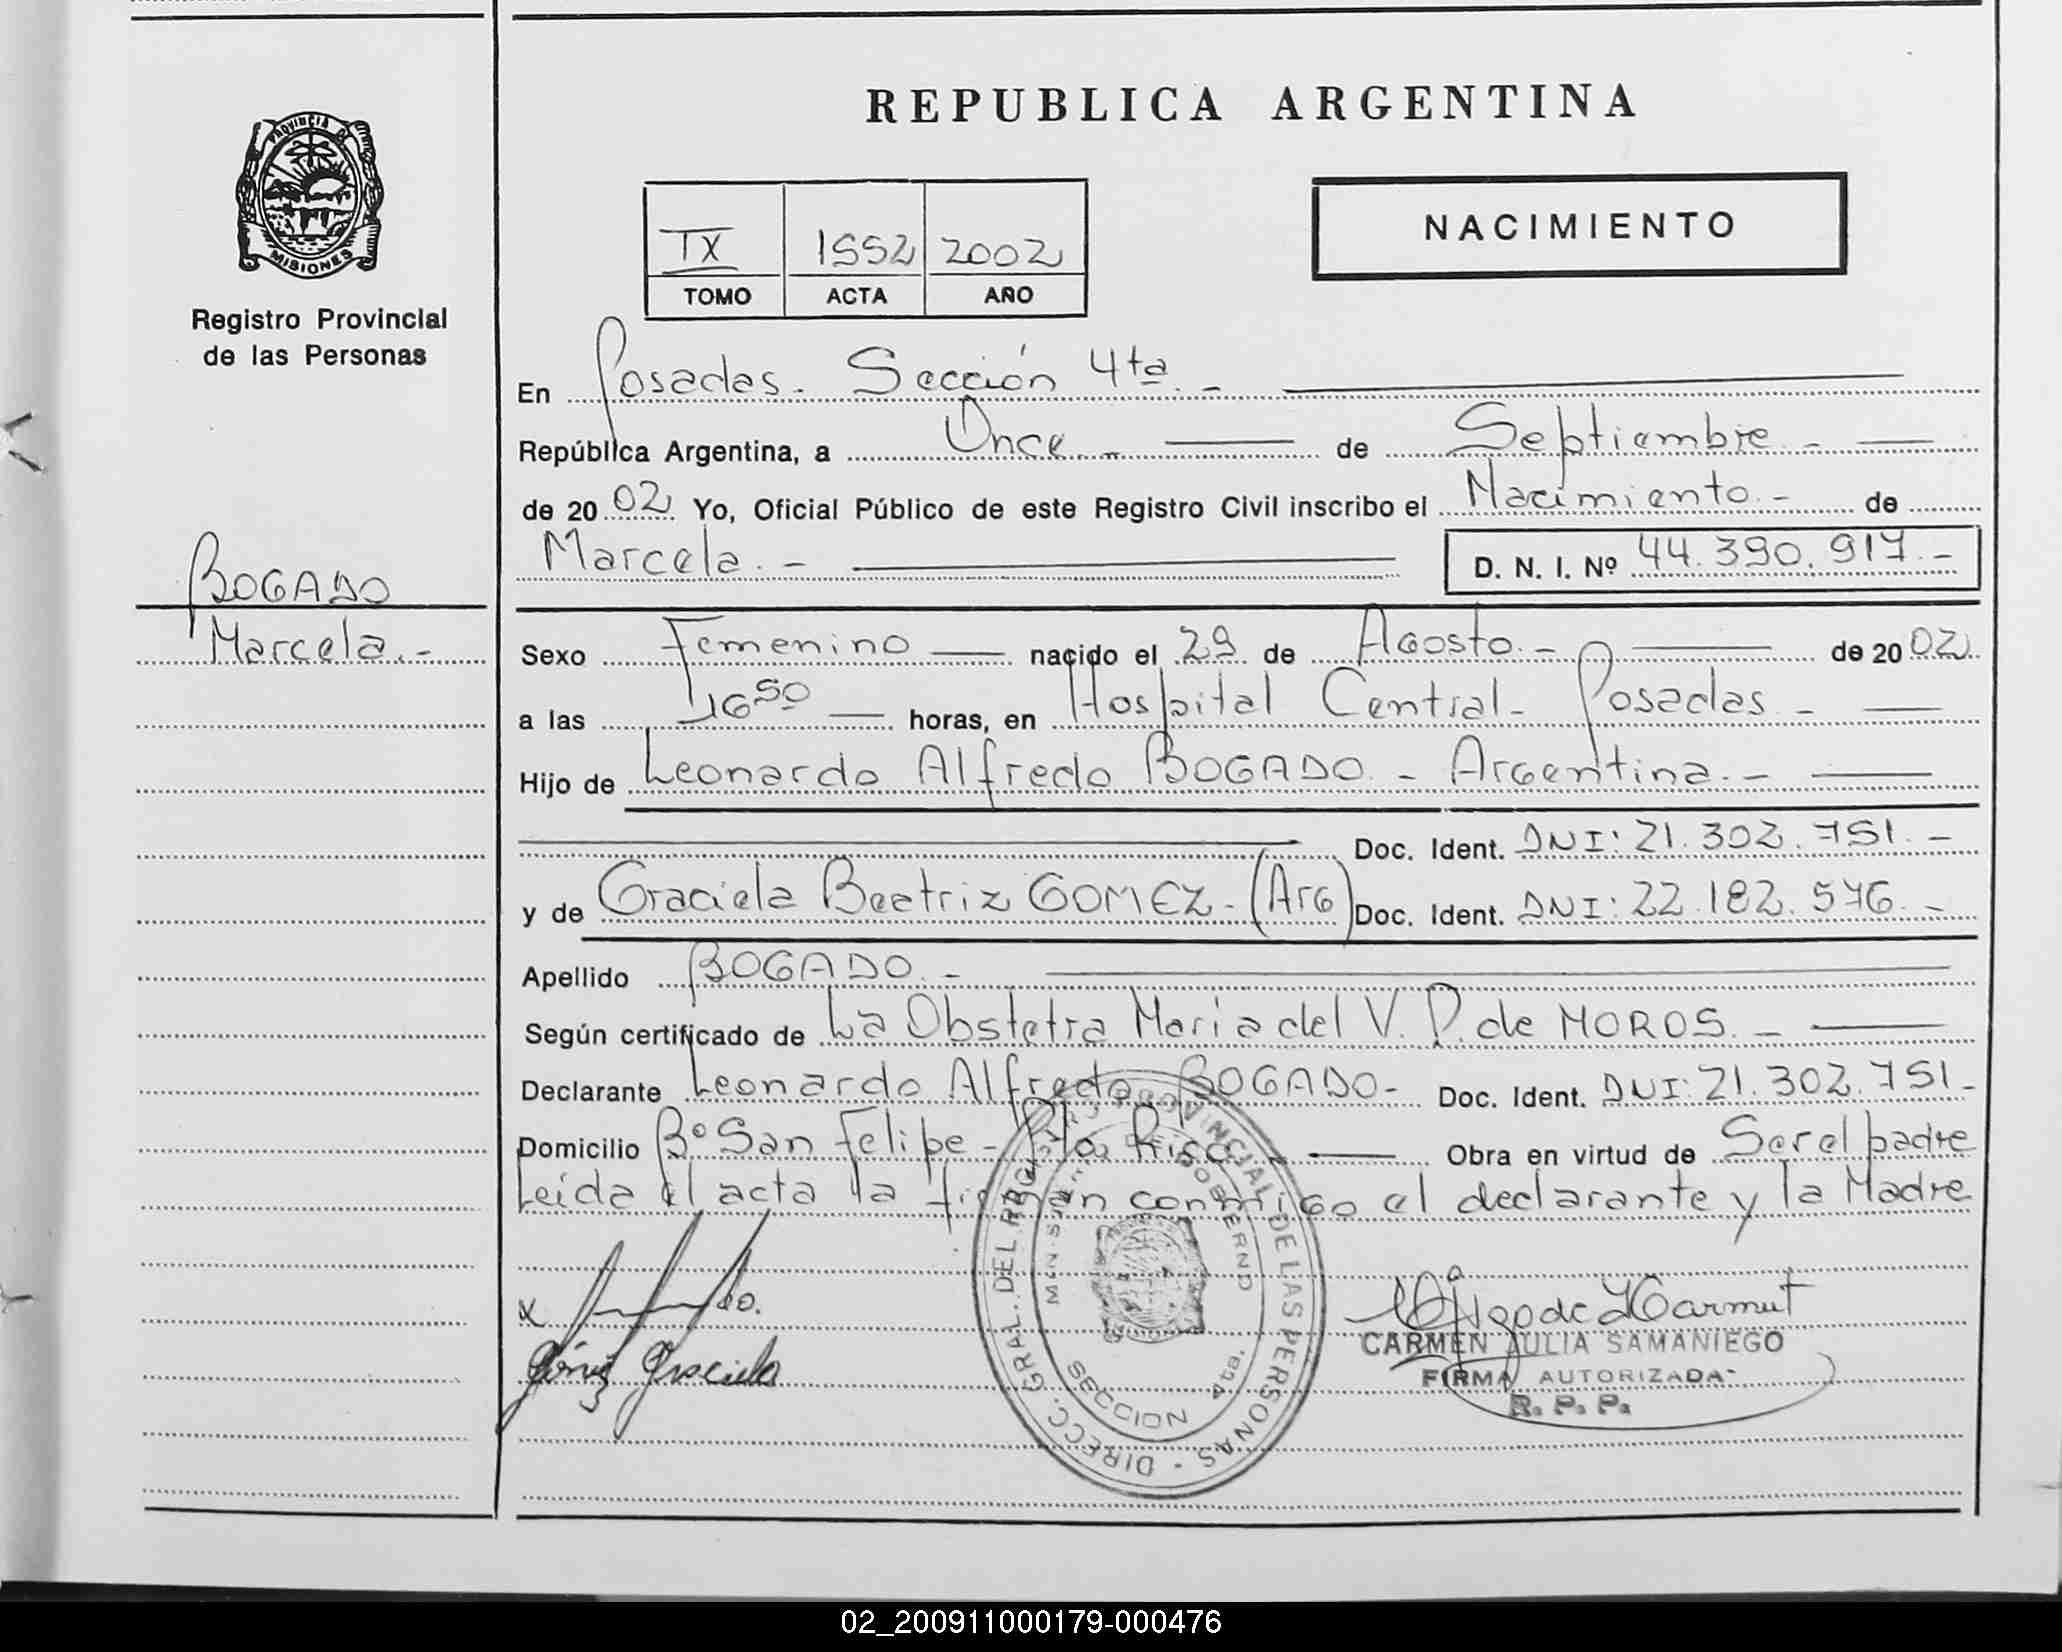 REPUBLICA ARGENTINA
PROVINCIA DE
MISIONES
Registro Provincial
de las Personas
IX 1552 2002
TOMO ACTA AÑO
NACIMIENTO
En Posadas. Sección 4ta. -
República Argentina, a Once.- de Septiembre. -
de 2002 Yo, Oficial Público de este Registro Civil inscribo el Nacimiento. - de
Marcela. -
D. N. I. Nº 44.390.917. -
BOGADO
Marcela. -
Sexo Femenino nacido el 29 de Agosto. - de 2002.
a las 16 50 horas, en Hospital Central - Posadas -
Hijo de Leonardo Alfredo BOGADO. - Argentina. -
Doc. Ident. DNI: 21.302.751. -
y de Graciela Beatriz GOMEZ - (Arg) Doc. Ident. DNI: 22.182.576. -
Apellido BOGADO. -
Según certificado de La Obstetra Maria del V. P. de MOROS. -
Declarante Leonardo Alfredo BOGADO - Doc. Ident. DNI: 21.302.751 -
Domicilio Bº San Felipe - Obra en virtud de Ser el padre
Leida el acta la firman conmigo el declarante y la Madre
x
Gómez Graciela
DIRECC. GRAL. DEL REGISTRO PROVINCIAL DE LAS PERSONAS -
MINIST. DE GOBIERNO
SECCION 4ta.
CARMEN JULIA SAMANIEGO
FIRMA AUTORIZADA
R. P. P.
02_200911000179-000476